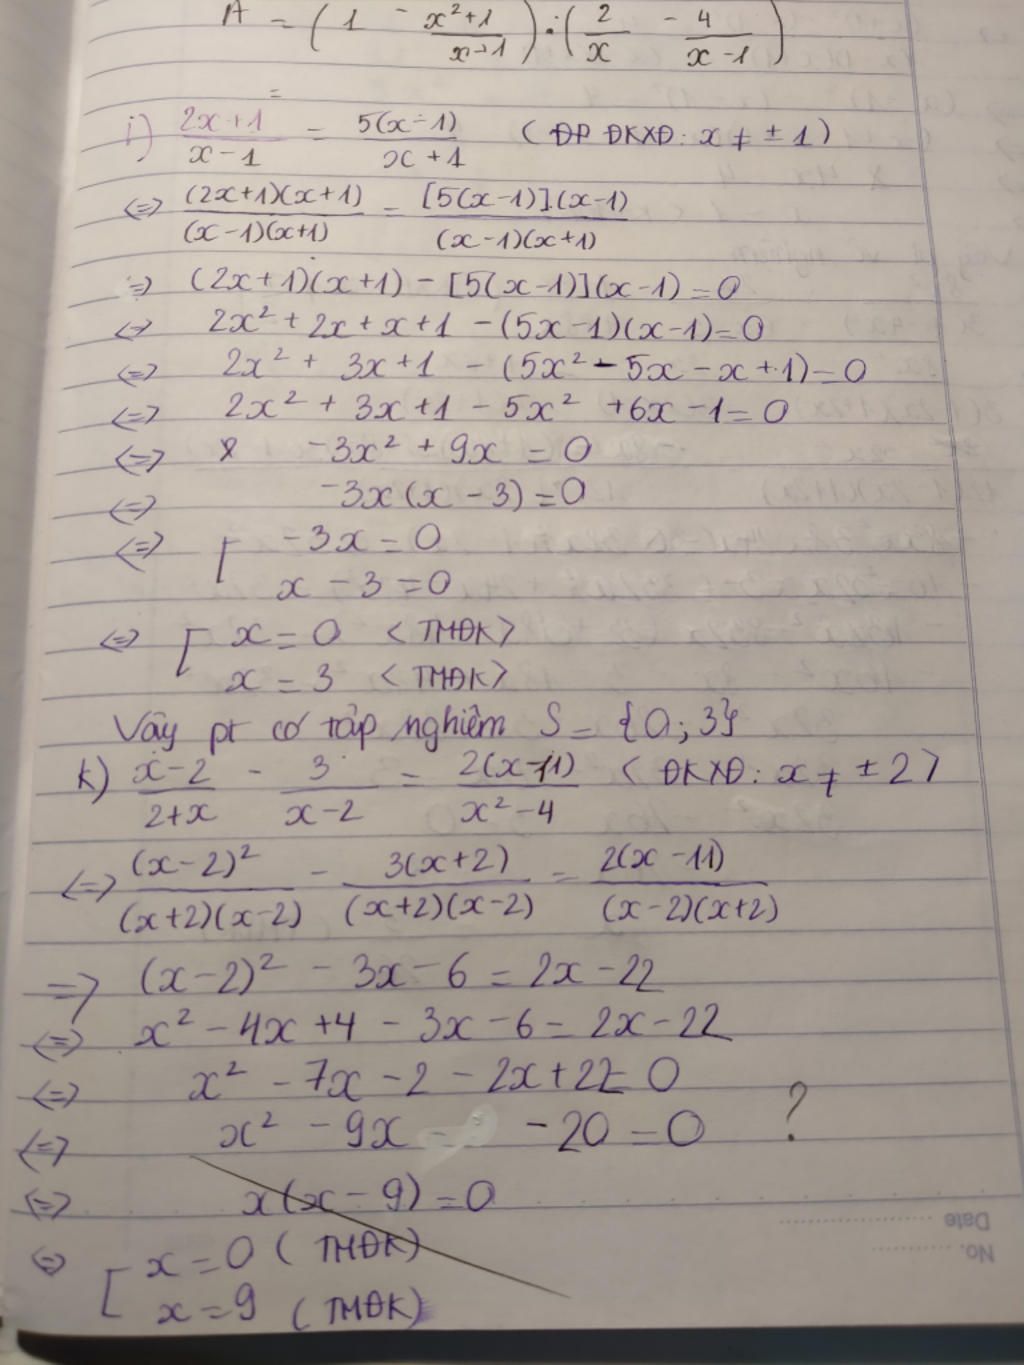 A = ( 1 - x²+1/x+1 ) : ( 2/x - 4/x-1 )
=
i) 2x+1/x-1 = 5(x-1)/x+1 ( ĐP ĐKXĐ: x ≠ ±1 )
<=> (2x+1)(x+1)/(x-1)(x+1) = [5(x-1)].(x-1)/(x-1)(x+1)
=> (2x+1)(x+1) - [5(x-1)](x-1) = 0
<=> 2x² + 2x + x + 1 - (5x-1)(x-1) = 0
<=> 2x² + 3x + 1 - (5x² - 5x - x + 1) = 0
<=> 2x² + 3x + 1 - 5x² + 6x - 1 = 0
<=> -3x² + 9x = 0
<=> -3x(x - 3) = 0
<=> [ -3x = 0
x - 3 = 0
<=> [ x = 0 <TMĐK>
x = 3 <TMĐK>
Vậy pt có tập nghiệm S = {0; 3}
k) x-2/2+x - 3/x-2 = 2(x-11)/x²-4 < ĐKXĐ: x ≠ ±2 >
<=> (x-2)²/(x+2)(x-2) - 3(x+2)/(x+2)(x-2) = 2(x-11)/(x-2)(x+2)
=> (x-2)² - 3x - 6 = 2x - 22
<=> x² - 4x + 4 - 3x - 6 = 2x - 22
<=> x² - 7x - 2 - 2x + 22 = 0
<=> x² - 9x - 20 = 0 ?
<=> x(x - 9) = 0
<=> [ x = 0 ( TMĐK)
x = 9 ( TMĐK)
Date
No.